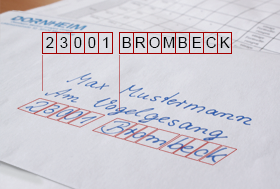 DORNHEIM
23001 BROMBECK
Max Mustermann
Am Vogelgesang
23001 Brombeck